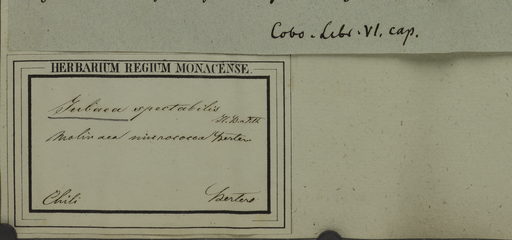 Cobo. Libr. VI. cap.
HERBARIUM REGIUM MONACENSE.
Jubaea spectabilis
H.B.et K.
Molinaea micrococca Bertero
Chili Bertero